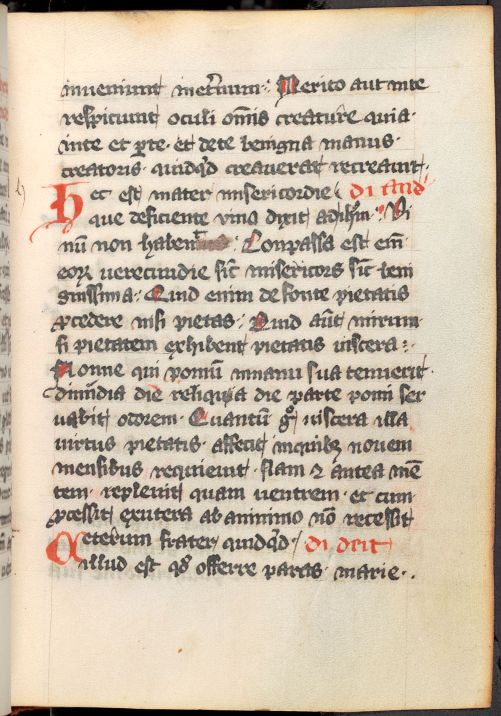 inveniunt inet̄num : Merito aut inte
respiciunt oculi om̄is creature quia ·
inte et p̱te · et dete benigna manus ·
creatoris · quidq̄d creauerat recreauit ·
Hec est mater misericordie di and
que deficiente vino dixit ad ih̄m : Vi
nū non haben : Conpassa est em̄
eoꝝ uerecundie sic̄ misericors sic̄ beni
gnissima : Quid enim de fonte pietatis
ꝓcedere nisi pietas : Quid aūt mirum
si pietatem exhibent pietatis viscera :
Nonne qui pomū inmanu sua tenuerit ·
dimidia die reliqua die parte pomi ser
uabit odorem · Quantū gͦ viscera illa
virtus pietatis · affecit inquibꝫ nouem
mensibus requieuit · Nam ⁊ antea mē
tem · repleuit quam uentrem · et cum
ꝓcessit exutera ab animo nō recessit
Ceterum frater quidq̄d di
illud est qd̄ offerre paras · marie ·